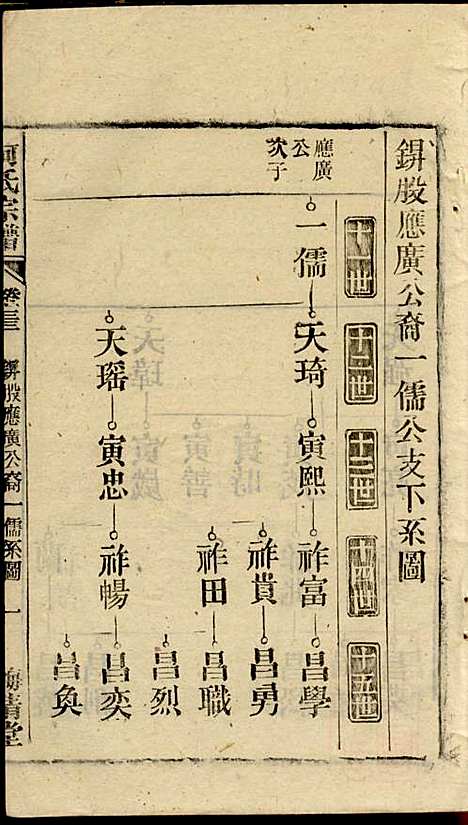 鎅股應廣公裔一儒公支下系圖
十一世
十二世
十三世
十四世
十五世
應廣
公
次子
一儒
天琦
寅熙
祚富
昌學
祚貴
昌勇
祚田
昌職
昌烈
天瑶
寅忠
祚暢
昌奕
昌奐
何氏宗譜
卷三
股應廣公裔一儒系圖
一
堂